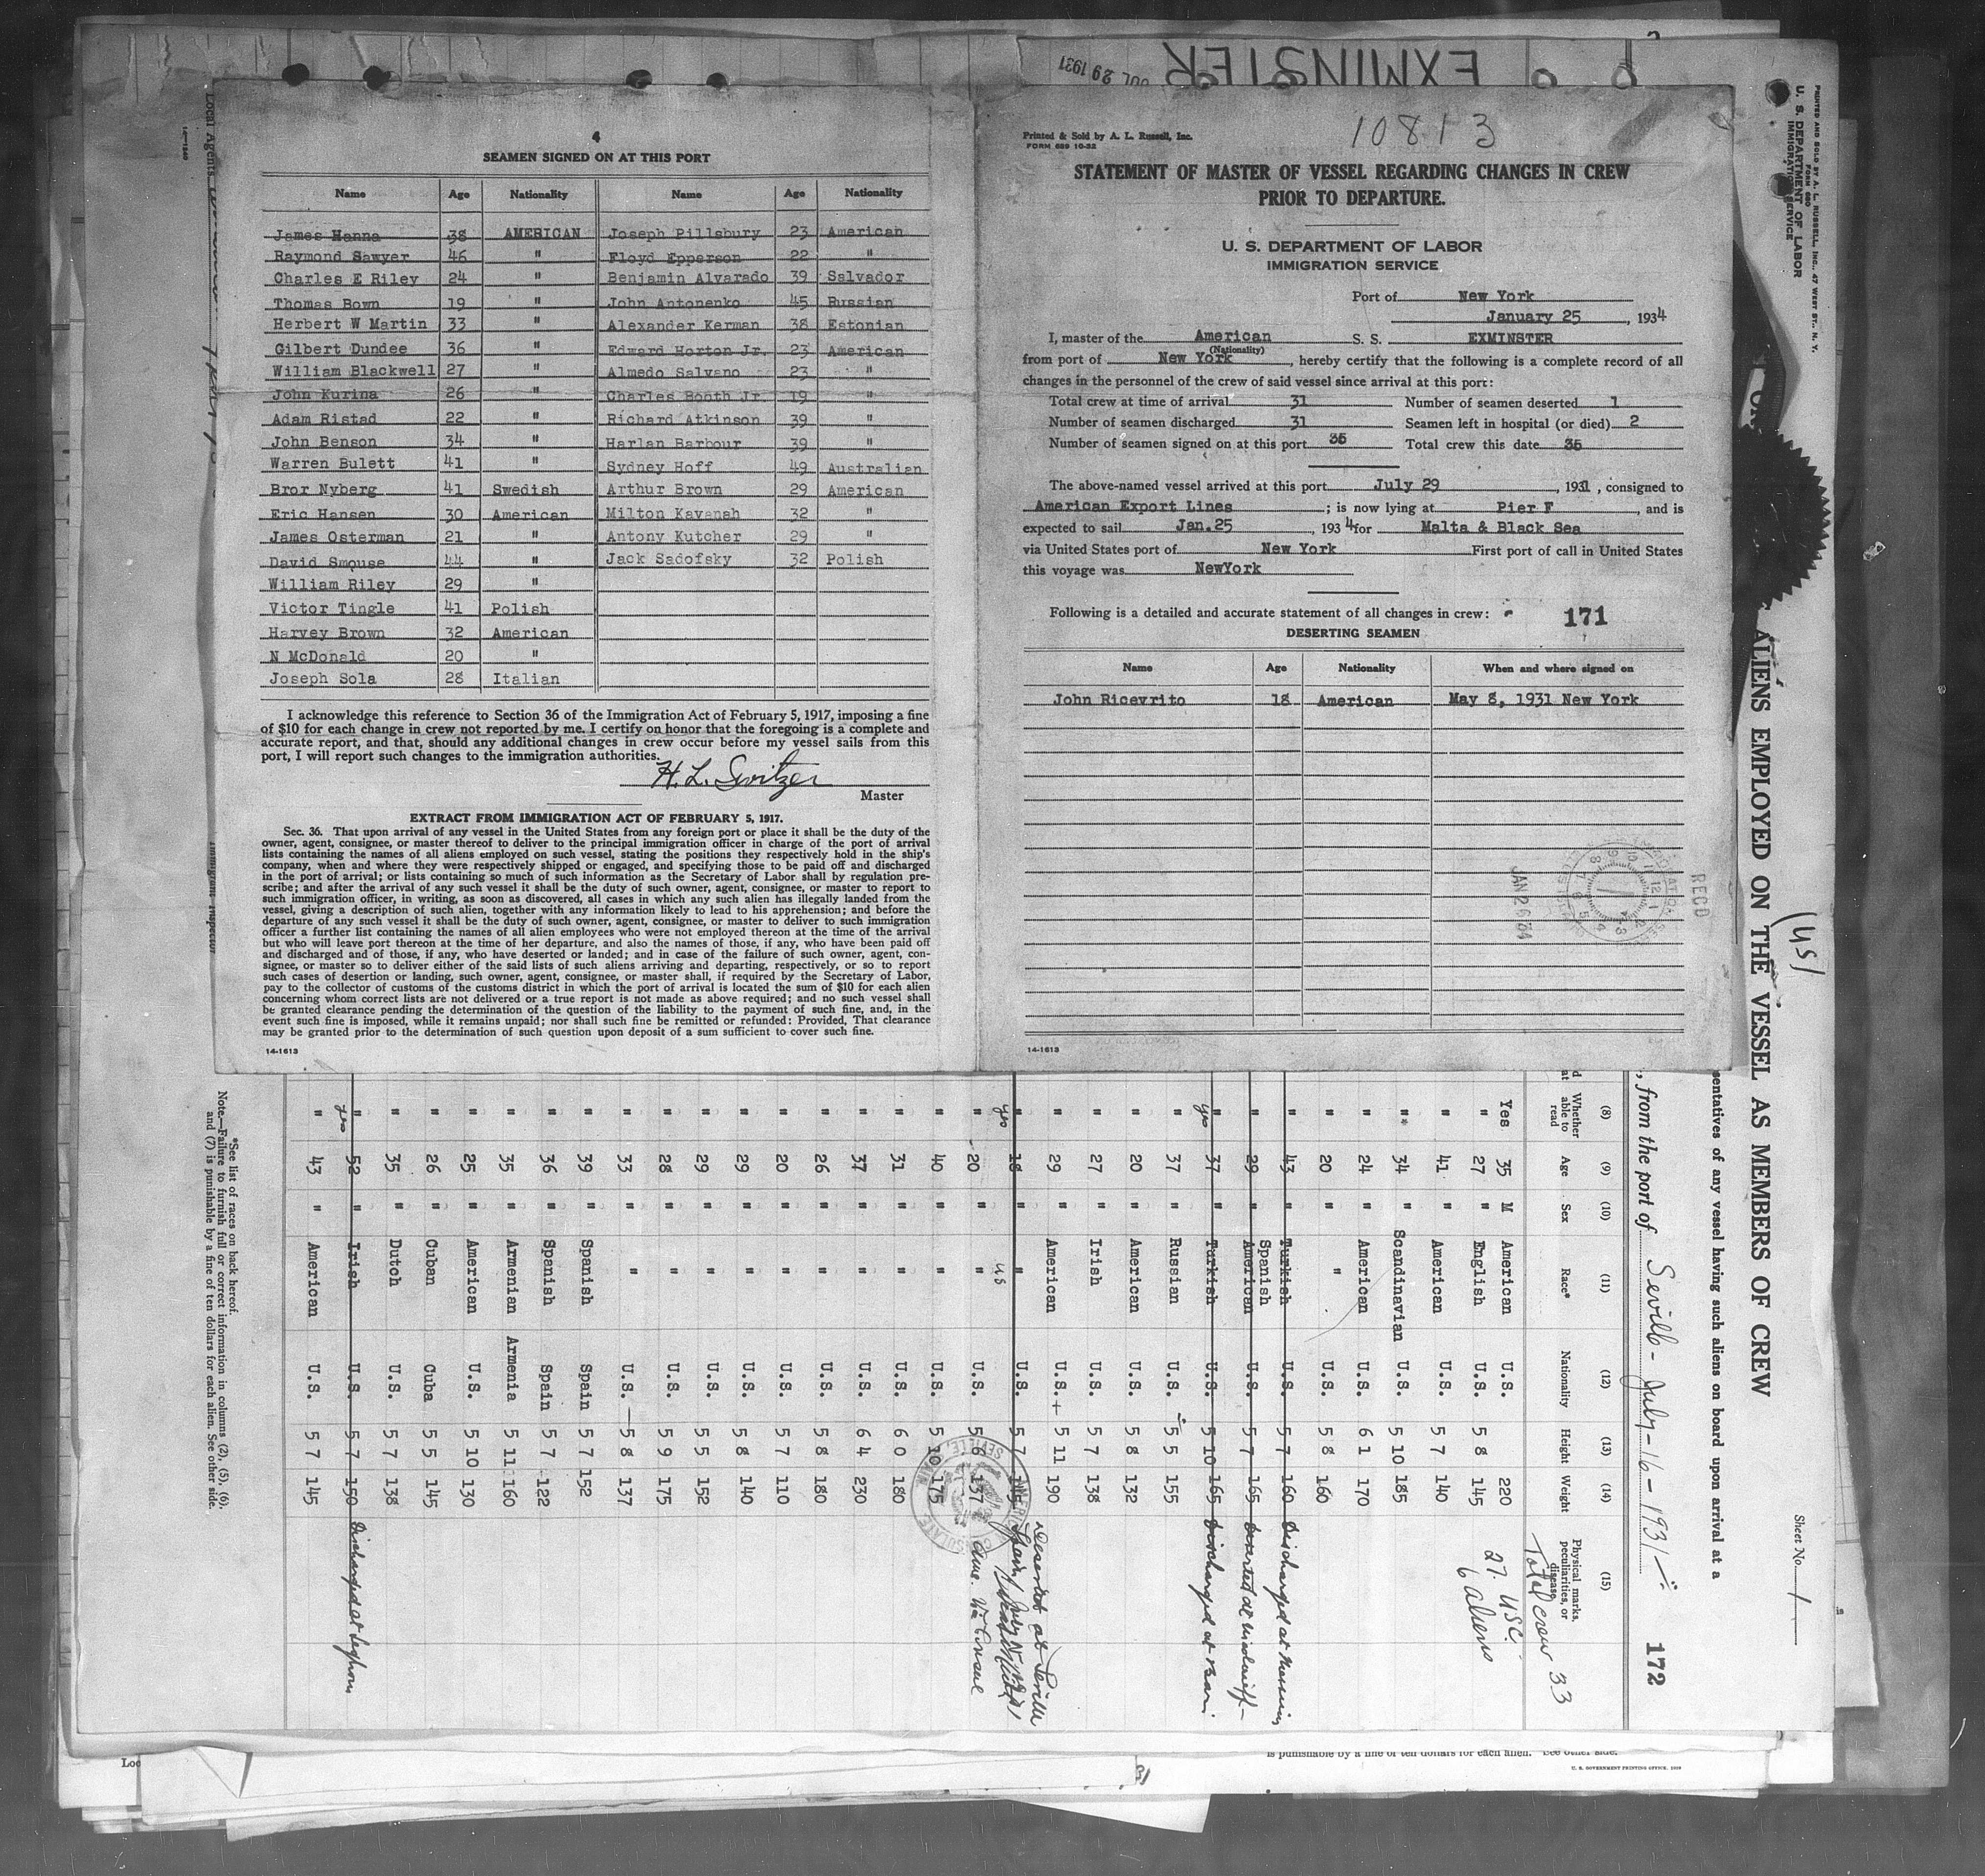 EXMINSTER
JUL 29 1931
4
SEAMEN SIGNED ON AT THIS PORT
Name Age Nationality Name Age Nationality
James Hanna 38 AMERICAN Joseph Pillsbury 23 American
Raymond Sawyer 46 " Floyd Epperson 22 "
Charles E Riley 24 " Benjamin Alvarado 39 Salvador
Thomas Bown 19 " John Antonenko 45 Russian
Herbert W Martin 33 " Alexander Kerman 38 Estonian
Gilbert Dundee 36 " Edward Horton Jr. 23 American
William Blackwell 27 " Almedo Salvano 23 "
John Kurina 26 " Charles Booth Jr 19 "
Adam Ristad 22 " Richard Atkinson 39 "
John Benson 34 " Harlan Barbour 39 "
Warren Bulett 41 " Sydney Hoff 49 Australian
Bror Nyberg 41 Swedish Arthur Brown 29 American
Eric Hansen 30 American Milton Kavanah 32 "
James Osterman 21 " Antony Kutcher 29 "
David Smouse 44 " Jack Sadofsky 32 Polish
William Riley 29 "
Victor Tingle 41 Polish
Harvey Brown 32 American
N McDonald 20 "
Joseph Sola 28 Italian
I acknowledge this reference to Section 36 of the Immigration Act of February 5, 1917, imposing a fine
of $10 for each change in crew not reported by me. I certify on honor that the foregoing is a complete and
accurate report, and that, should any additional changes in crew occur before my vessel sails from this
port, I will report such changes to the immigration authorities.
H. L. Switzer
Master
EXTRACT FROM IMMIGRATION ACT OF FEBRUARY 5, 1917.
Sec. 36. That upon arrival of any vessel in the United States from any foreign port or place it shall be the duty of the
owner, agent, consignee, or master thereof to deliver to the principal immigration officer in charge of the port of arrival
lists containing the names of all aliens employed on such vessel, stating the positions they respectively hold in the ship's
company, when and where they were respectively shipped or engaged, and specifying those to be paid off and discharged
in the port of arrival; or lists containing so much of such information as the Secretary of Labor shall by regulation pre-
scribe; and after the arrival of any such vessel it shall be the duty of such owner, agent, consignee, or master to report to
such immigration officer, in writing, as soon as discovered, all cases in which any such alien has illegally landed from the
vessel, giving a description of such alien, together with any information likely to lead to his apprehension; and before the
departure of any such vessel it shall be the duty of such owner, agent, consignee, or master to deliver to such immigration
officer a further list containing the names of all alien employees who were not employed thereon at the time of the arrival
but who will leave port thereon at the time of her departure, and also the names of those, if any, who have been paid off
and discharged and of those, if any, who have deserted or landed; and in case of the failure of such owner, agent, con-
signee, or master so to deliver either of the said lists of such aliens arriving and departing, respectively, or so to report
such cases of desertion or landing, such owner, agent, consignee, or master shall, if required by the Secretary of Labor,
pay to the collector of customs of the customs district in which the port of arrival is located the sum of $10 for each alien
concerning whom correct lists are not delivered or a true report is not made as above required; and no such vessel shall
be granted clearance pending the determination of the question of the liability to the payment of such fine, and, in the
event such fine is imposed, while it remains unpaid; nor shall such fine be remitted or refunded: Provided, That clearance
may be granted prior to the determination of such question upon deposit of a sum sufficient to cover such fine.
14-1613
Printed & Sold by A. L. Russell, Inc.
FORM 689 10-32
10813
STATEMENT OF MASTER OF VESSEL REGARDING CHANGES IN CREW
PRIOR TO DEPARTURE.
U. S. DEPARTMENT OF LABOR
IMMIGRATION SERVICE
Port of New York
January 25, 1934
I, master of the American S. S. EXMINSTER
(Nationality)
from port of New York, hereby certify that the following is a complete record of all
changes in the personnel of the crew of said vessel since arrival at this port:
Total crew at time of arrival 31 Number of seamen deserted 1
Number of seamen discharged 31 Seamen left in hospital (or died) 2
Number of seamen signed on at this port 35 Total crew this date 35
The above-named vessel arrived at this port July 29, 1931, consigned to
American Export Lines; is now lying at Pier F, and is
expected to sail Jan. 25, 1934 for Malta & Black Sea
via United States port of New York First port of call in United States
this voyage was NewYork
Following is a detailed and accurate statement of all changes in crew: 171
DESERTING SEAMEN
Name Age Nationality When and where signed on
John Ricevrito 18 American May 8, 1931 New York
JAN 26 34
RECD
14-1613
PRINTED AND SOLD BY A. L. RUSSELL, INC., 47 WEST ST., N. Y.
FORM 680
U. S. DEPARTMENT OF LABOR
IMMIGRATION SERVICE
Sheet No. 1
(US)
ALIENS EMPLOYED ON THE VESSEL AS MEMBERS OF CREW
sentatives of any vessel having such aliens on board upon arrival at a
, from the port of Seville - July - 16 - 1931 172
(8) (9) (10) (11) (12) (13) (14) (15)
Whether able to read Age Sex Race* Nationality Height Weight Physical marks, peculiarities, or disease
Total crew 33
27. USC.
6 Aliens
Yes 35 M American U.S. 220
" 27 " English U.S. 5 8 145
" 41 " American U.S. 5 7 140
" 34 " Scandinavian U.S. 5 10 185
" 24 " American U.S. 6 1 170
" 20 " " U.S. 5 8 160
" 43 " Turkish U.S. 5 7 160 Discharged at Messina
" 29 " Spanish American U.S. 5 7 165 Deserted at
yes " 37 " Turkish U.S. 5 10 165 Discharged at
" 37 " Russian U.S. 5 5 155
" 20 " American U.S. 5 8 132
" 27 " Irish U.S. 5 7 138
" 29 " American U.S. + 5 11 190
yes " 18 " " U.S. 5 7 145 Deserted at Seville Spain
" 20 " " U.S. 5 6 137
US
" 40 " " U.S. 5 10 175
" 31 " " U.S. 6 0 180
" 37 " " U.S. 6 4 230
" 26 " " U.S. 5 8 180
" 20 " " U.S. 5 7 110
" 29 " " U.S. 5 8 140
" 29 " " U.S. 5 5 152
" 28 " " U.S. 5 9 175
" 33 " " U.S. 5 8 137
" 39 " Spanish Spain 5 7 152
" 36 " Spanish Spain 5 7 122
" 35 " Armenian Armenia 5 11 160
" 25 " American U.S. 5 10 130
" 26 " Cuban Cuba 5 5 145
" 35 " Dutch U.S. 5 7 138
yes " 52 " Irish U.S. 5 7 150 Discharged at Leghorn
" 43 " American U.S. 5 7 145
AMERICAN CONSULATE SEVILLE, SPAIN
*See list of races on back hereof.
Note.—Failure to furnish full or correct information in columns (2), (5), (6),
and (7) is punishable by a fine of ten dollars for each alien. See other side.
Local Agents
14-1240
Immigrant Inspector
Loc
is punishable by a fine of ten dollars for each alien. See other side.
U. S. GOVERNMENT PRINTING OFFICE: 1929
31